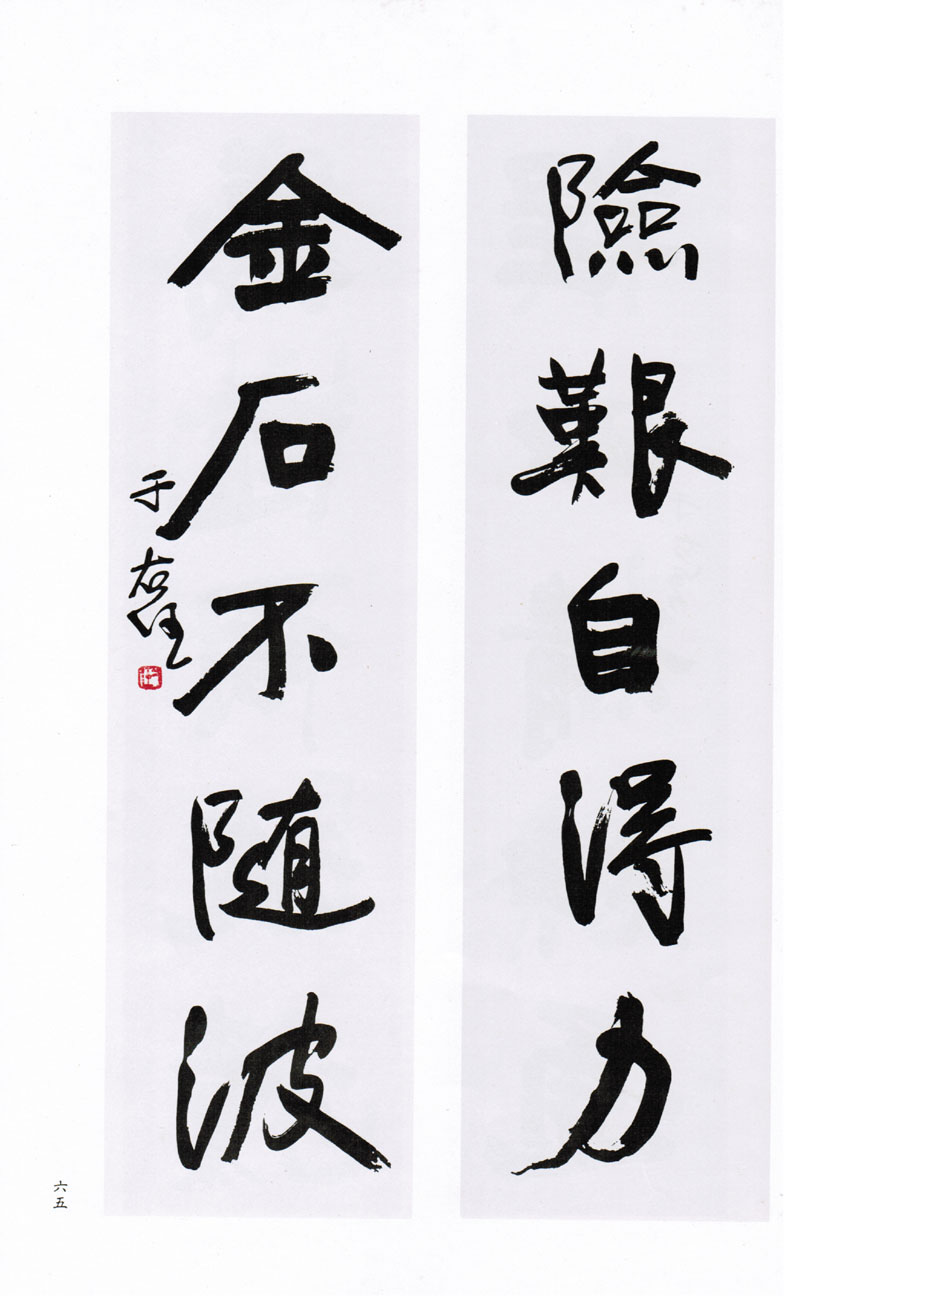 險艱自得力
金石不随波
于右任
六五